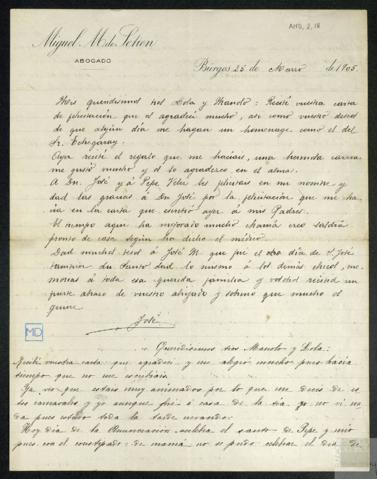 AHS, 2, 18
Miguel M. de Setien
ABOGADO
Burgos 25 de Marzo de 1905.
Mis queridísimos tios Lola y Manolo: Recibí vuestra carta
de felicitación que os agradecí mucho, así como vuestro deseo
de que algún día me hagan un homenage como el del
Sr. Echegaray.
Ayer recibí el regalo que me hacíais, una
me gustó mucho y os lo agradezco en el alma.
A Dn. José y á Pepe Velez les felicitais en mi nombre y
dad las gracias á Dn José por la felicitación que me
en la carta que escribió ayer á mis Padres.
El tiempo aquí ha mejorado mucho Mamá creo saldría
pronto de casa según ha dicho el médico.
Dad
también su Santo dad lo mismo á los demás
á toda esa querida familia y
abrazo de vuestro ahijado y sobrino que mucho os
quiere
José
MD
Queridísimos tios Manolo y Lola:
Recibí vuestra carta que agradecí y me alegró mucho pues hacía
tiempo que no me escribíais
Ya veo que estais muy animados por lo que me decís de
los carnavales y yo aunque fui á casa de la tía
pues estuvo toda la tarde nevando.
Hoy día de la Anunciación celebra el santo de Pepe y mio
pues con el constipado de mamá no se pudo celebrar el día de